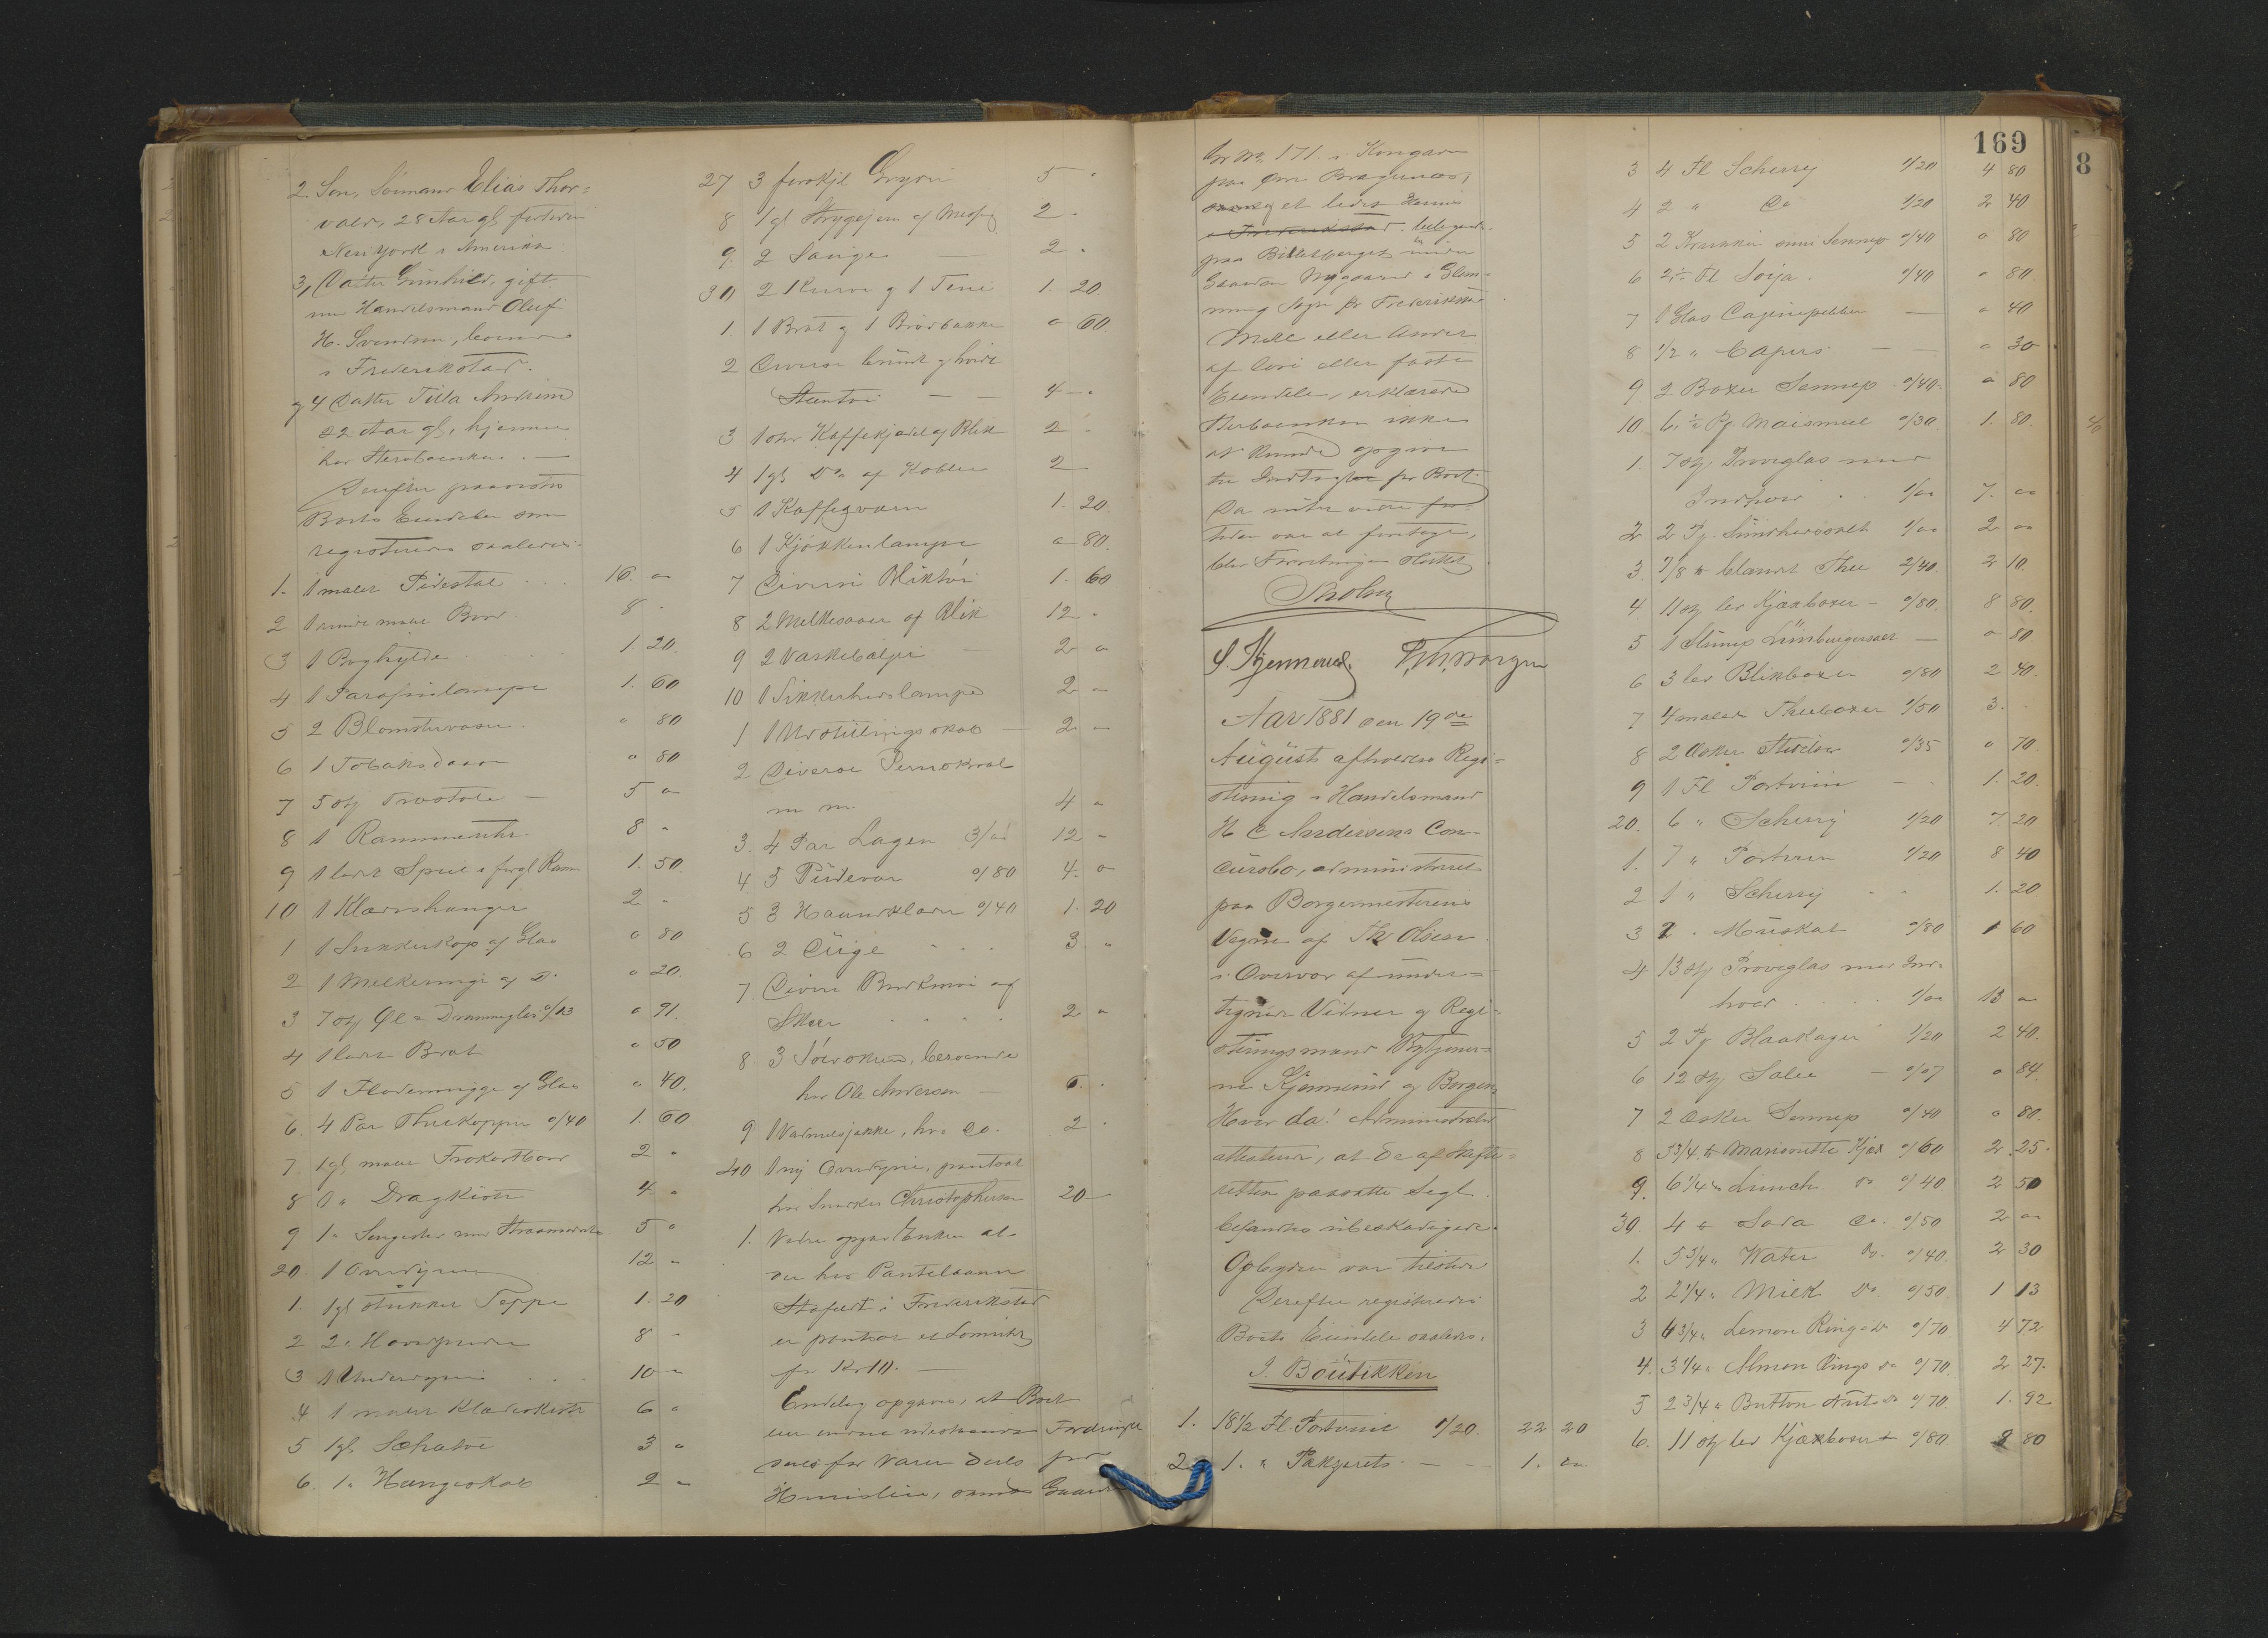 2. Søn, Sømand Elias Thor-
vald, 28 Aar gl,
New York i Amerika
3, Datter Gunhild, gift
med Handelsmand Oluf
H. Svendsen, boende
i Frederikstad.
og 4 Datter Tilla
22 Aar gl, hjemme
hos Sterboenken. —
Derefter paavistes
Boets Eiendele som
registreredes saaledes:
1. 1 malet Pidestal 16. "
2 1 rundt malt Bord 8 "
3 1 Boghylde 1. 20.
4 1 Parafinlampe 1. 60
5 2 Blomstervaser " 80
6 1 Tobaksdaase " 80
7 5 stk Træstole — 5 "
8 1 Rammeuhr 8 "
9 1 lidet Speil i forgl Ramme 1. 50.
10 1 Klædeshænger 2 "
1 1 Sukkerkop af Glas " 80
2 1 Melkemugge af Do " 20.
3 7 stk Øl & Dramme glas o/13 " 91.
4 1 lidet Bræt " 50
5 1 Flødemugge af Glas " 40.
6. 4 Par Thekopper o/40 1. 60
7. 1 gl, malt Frokostbord 2 "
8 1 " Dragkiste 4 "
9 1 " Sengested med Straamadrats 5 "
20. 1 Overdyne 12 "
1. 1 gl stukket Teppe 1. 20
2 2 " Hovedpuder 8 "
3 1 Underdyne 10 "
4 1 malet Klædeskiste 6 "
5 1 gl Schatol 3 "
6. 1 " Hængeskab 2 "
27 3 forskjl Gryder 5 "
8 1 gl Strygejern af Messing 2 "
9. 2 Senge — 2 "
30 2 Kurve og 1 Tine 1. 20.
1 1 Bræt og 1 Brødbakke " 60.
2 Diverse brunt og hvidt
Stentøi — 4 "
3 1 stor Kaffekjedel af Blik 2 "
4 1 gl Do af Kobber 2
5 1 Kaffeqværn 1. 20.
6 1 Kjøkkenlampe " 80.
7 Diverse Bliktøi 1. 60
8 2 Melkesaaer af Blik 12 "
9 2 Vaskebaljer — 2 "
10 1 Sikkerhedslampe 2 "
1 1 Udstillingsskab — 2 "
2 Diverse
m m. 4 "
3. 4 Par Lagen 3/" 12 "
4 5 Pudevar o/80 4. "
5 3 Haandklæder o/40 1. 20
6 2 Duge 3. "
7 Diverse Bordknive af
Skeer 2 "
8. 3 Sølvskeer, beroende
hos Ole Andersen — 6. "
9 1 Vadmelsjakke, hos Do. 2 "
40 1 ny Overdyne, pantsat
hos Snedker Christophersen 20 —
1. Videre opgav Enken at
der hos Pantelaaner
Stafsedt i Frederikstad
er pantsat et Lommeuhr
for Kr 10. —
Endelig opgaves, at Boet
eier endnu udestaaende Fordringer
dels for Varer dels for
Huusleie, samt Gaarde
Gr No 171. i Kongens
paa Øvre Bragernæs,
samt et lidet Huus
i Frederikstad. beliggende
paa Billesberget under
Gaarden Nygaard i Glem-
minge Sogn pr Frederikstad
Mere eller Andet
af løse eller faste
Eiendele, erklærede
Sterboenken ikke
at kunde opgive
til Indtægt for Boet.
Da intet videre for
Tiden var at foretage,
blev Forretningen sluttet
S. Kjennerud.
Aar 1881 den 19de
August afholdtes Regi-
strering i Handelsmand
H C Andersens Con-
cursbo, administreret
paa Borgermesterens
Vegne af Th Olsen
i Overvær af under-
tegnede Vidner og Regi-
streringsmænd Bytjener-
ne Kjennerud og Borgen.
Hvor da! Administrator
attesterer, at de af Skifte-
retten paasatte Segl
befandtes ubeskadigede.
Opbyderen var tilstede
Derefter registreredes
Boets Eiendele saaledes.
I. Boutikken
1. 18 1/2 Fl. Portviin 1/20. 22 20
2. 1. " Pakjerets — 1. "
169
3 4 Fl Scherry 1/20 4 80
4 2 " Do 1/20 2 40
5 2 Krukker Sennep o/40 " 80
6 2 Fl Soija. o/40 " 80.
7 1 Glas Cajennepebber — " 40
8 1/2 " Capers — " 30
9 2 Boxer Sennep o/40. " 80
10 6 Pf Maismeel o/30 1. 80.
1. 7 stk Prøveglas med
Indhold 1/" 7. "
2 2 Pf. 1/" 2 "
3. 7/8 " blandet Thee 2/40. 2 10.
4 11 stk Kjæxboxer — o/80. 8 80.
5 1 Limburgerost — " 80
6 3 Blikboxer o/80 2 40.
7 4 malede Theeboxer o/50 3. "
8 2 Æsker o/35 " 70
9 1 Fl Portviin — 1. 20.
20. 6 " Scherry 1/20 7. 20
1. 7 " Portviin 1/20 8 40
2 1 " Scherry " 1. 20
3 2 " Muskat o/80 1 60
4 13 stk Prøveglas med Ind-
hold 1/" 13 "
5 2 Pf Blaakager 1/20 2 40.
6 12 stk — o/07 " 84.
7 2 Æsker Sennep o/40 " 80.
8 3 3/4 " Marionette Kjæx o/60 2. 25.
9. 6 1/4 " Lunch do o/40 2 50
30. 4 " Soda Do. o/50 2 "
1. 5 3/4 " Water Do. o/40. 2 30
2 2 1/4 " Milk Do o/50 1 13
3 6 3/4 " Lemon Rings Do o/70 4 72
4. 3 1/4 " Almon Rings do o/70 2 27.
5 2 3/4 " Button Nuts do o/70. 1. 92
6. 11 stk Kjæxboxer o/80 8 80
8